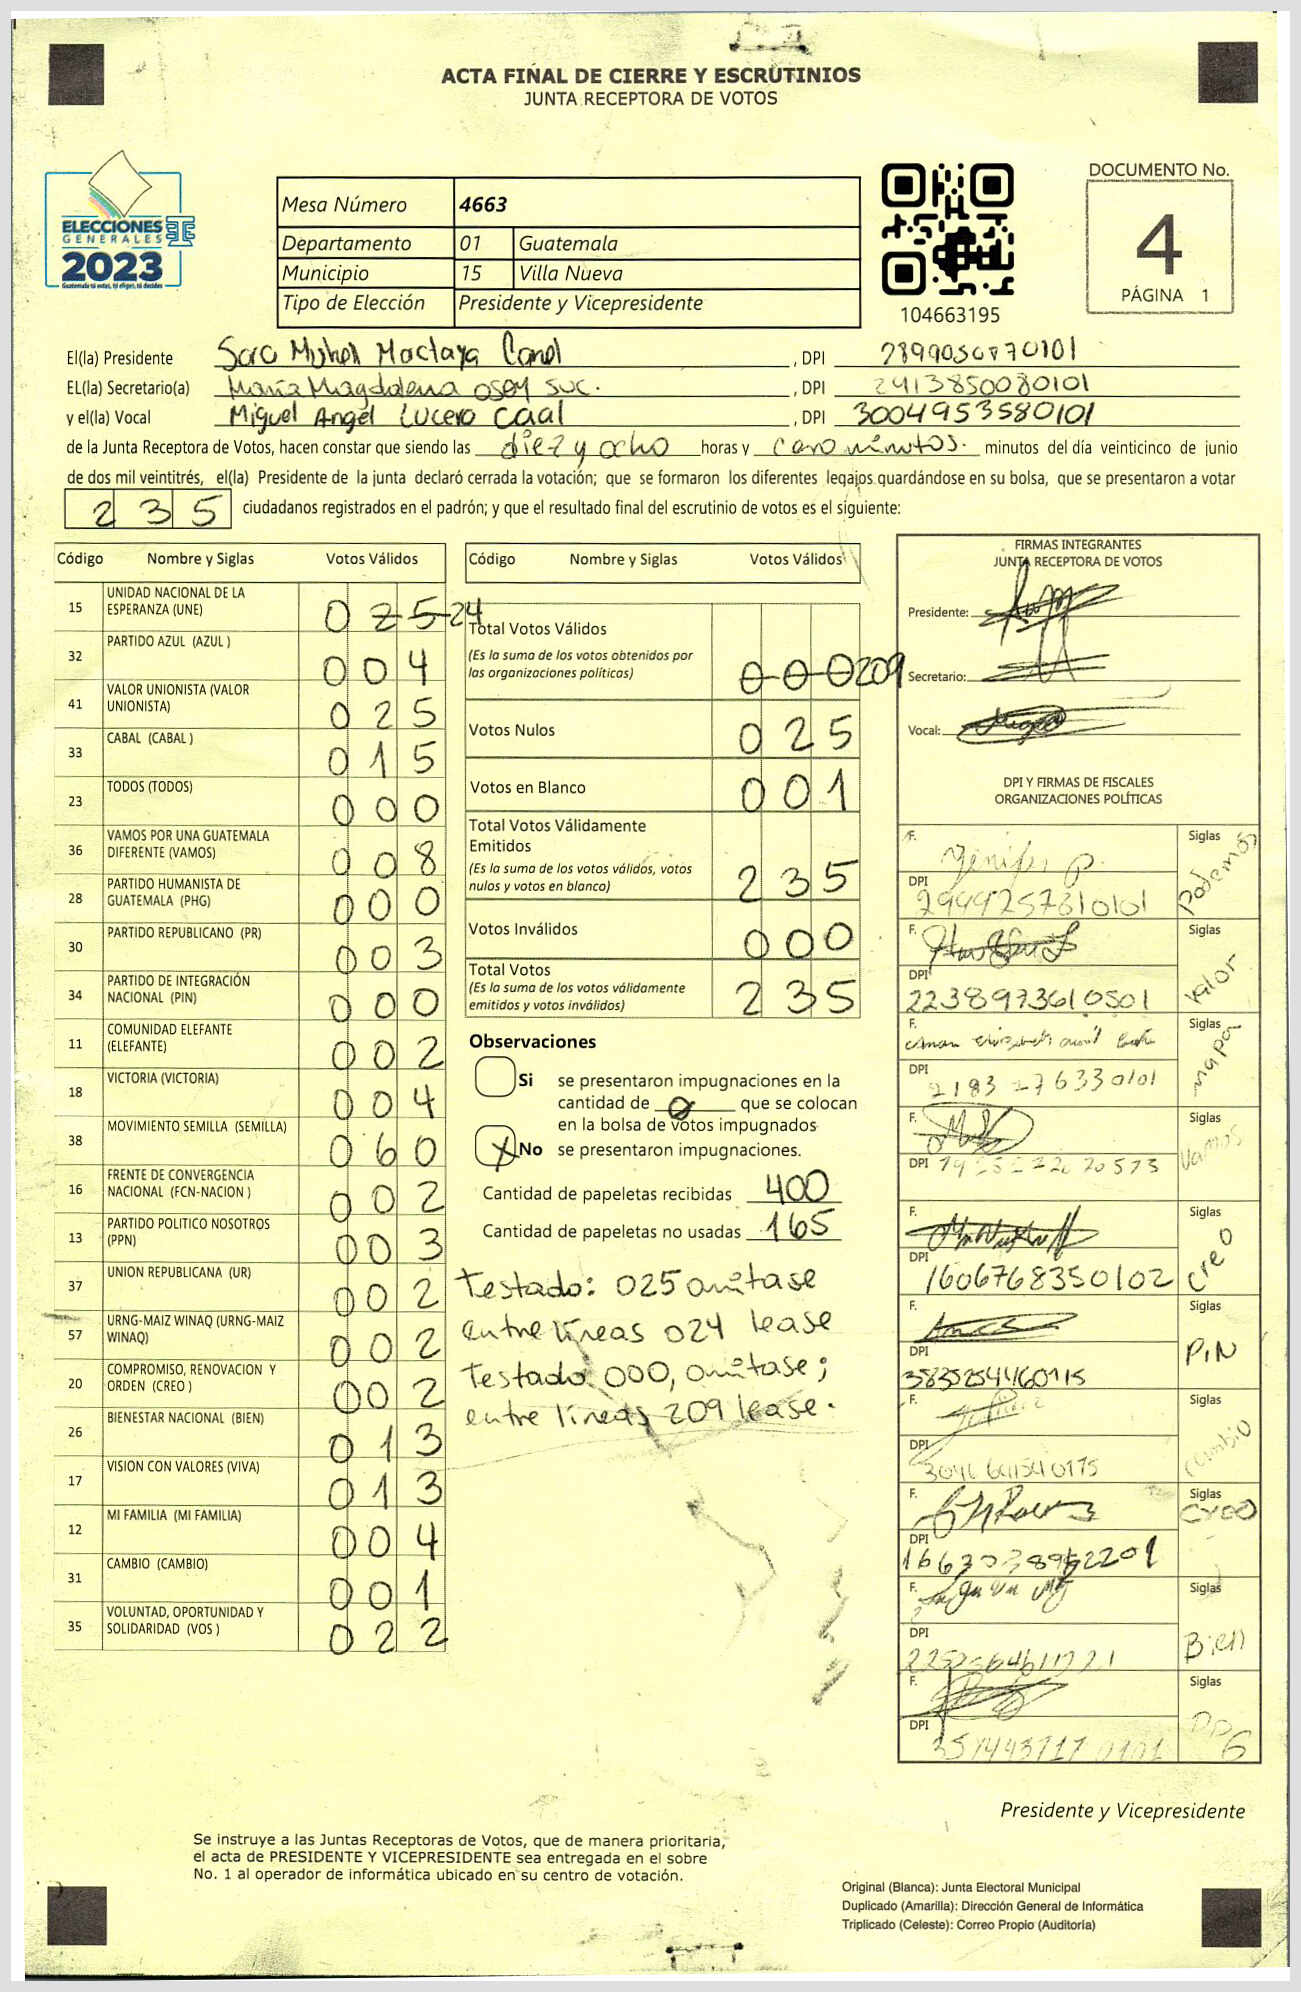 ACTA FINAL DE CIERRE Y ESCRUTINIOS
JUNTA RECEPTORA DE VOTOS
ELECCIONES
GENERALES
2023
Guatemala tú votas, tú eliges, tú decides
Mesa Número 4663
Departamento 01 Guatemala
Municipio 15 Villa Nueva
Tipo de Elección Presidente y Vicepresidente
104663195
DOCUMENTO No.
4
PÁGINA 1
El(la) Presidente , DPI
EL(la) Secretario(a) María Magdalena , DPI 2413850080101
y el(la) Vocal Miguel Angel Lucero Caal , DPI 3004953580101
de la Junta Receptora de Votos, hacen constar que siendo las diez y ocho horas y cero minutos. minutos del día veinticinco de junio
de dos mil veintitrés, el(la) Presidente de la junta declaró cerrada la votación; que se formaron los diferentes legajos guardándose en su bolsa, que se presentaron a votar
235 ciudadanos registrados en el padrón; y que el resultado final del escrutinio de votos es el siguiente:
Código Nombre y Siglas Votos Válidos
15 UNIDAD NACIONAL DE LA ESPERANZA (UNE) 025 24
32 PARTIDO AZUL (AZUL ) 004
41 VALOR UNIONISTA (VALOR UNIONISTA) 025
33 CABAL (CABAL ) 015
23 TODOS (TODOS) 000
36 VAMOS POR UNA GUATEMALA DIFERENTE (VAMOS) 008
28 PARTIDO HUMANISTA DE GUATEMALA (PHG) 000
30 PARTIDO REPUBLICANO (PR) 003
34 PARTIDO DE INTEGRACIÓN NACIONAL (PIN) 000
11 COMUNIDAD ELEFANTE (ELEFANTE) 002
18 VICTORIA (VICTORIA) 004
38 MOVIMIENTO SEMILLA (SEMILLA) 060
16 FRENTE DE CONVERGENCIA NACIONAL (FCN-NACION ) 002
13 PARTIDO POLITICO NOSOTROS (PPN) 003
37 UNION REPUBLICANA (UR) 002
57 URNG-MAIZ WINAQ (URNG-MAIZ WINAQ) 002
20 COMPROMISO, RENOVACION Y ORDEN (CREO ) 002
26 BIENESTAR NACIONAL (BIEN) 013
17 VISION CON VALORES (VIVA) 013
12 MI FAMILIA (MI FAMILIA) 004
31 CAMBIO (CAMBIO) 001
35 VOLUNTAD, OPORTUNIDAD Y SOLIDARIDAD (VOS ) 022
Código Nombre y Siglas Votos Válidos
Total Votos Válidos 000 209
(Es la suma de los votos obtenidos por
las organizaciones políticas)
Votos Nulos 025
Votos en Blanco 001
Total Votos Válidamente
Emitidos
(Es la suma de los votos válidos, votos
nulos y votos en blanco) 235
Votos Inválidos 000
Total Votos
(Es la suma de los votos válidamente
emitidos y votos inválidos) 235
Observaciones
Si se presentaron impugnaciones en la
cantidad de 0 que se colocan
en la bolsa de votos impugnados
X No se presentaron impugnaciones.
Cantidad de papeletas recibidas 400
Cantidad de papeletas no usadas 165
Testado: 025 omitase
entre líneas 024 lease
Testado 000, omitase;
entre líneas 209 lease.
FIRMAS INTEGRANTES
JUNTA RECEPTORA DE VOTOS
Presidente:
Secretario:
Vocal:
DPI Y FIRMAS DE FISCALES
ORGANIZACIONES POLÍTICAS
F. Siglas Podemos
DPI
F. Siglas Valor
DPI 2238973610501
F. Siglas
DPI 2183 27633 0101
F. Siglas Vamos
DPI
F. Siglas Creo
DPI 1606768350102
F. Siglas PIN
DPI
F. Siglas Cambio
DPI
F. Siglas Creo
DPI
F. Siglas Bien
DPI
F. Siglas
DPI
Presidente y Vicepresidente
Se instruye a las Juntas Receptoras de Votos, que de manera prioritaria,
el acta de PRESIDENTE Y VICEPRESIDENTE sea entregada en el sobre
No. 1 al operador de informática ubicado en su centro de votación.
Original (Blanca): Junta Electoral Municipal
Duplicado (Amarilla): Dirección General de Informática
Triplicado (Celeste): Correo Propio (Auditoría)